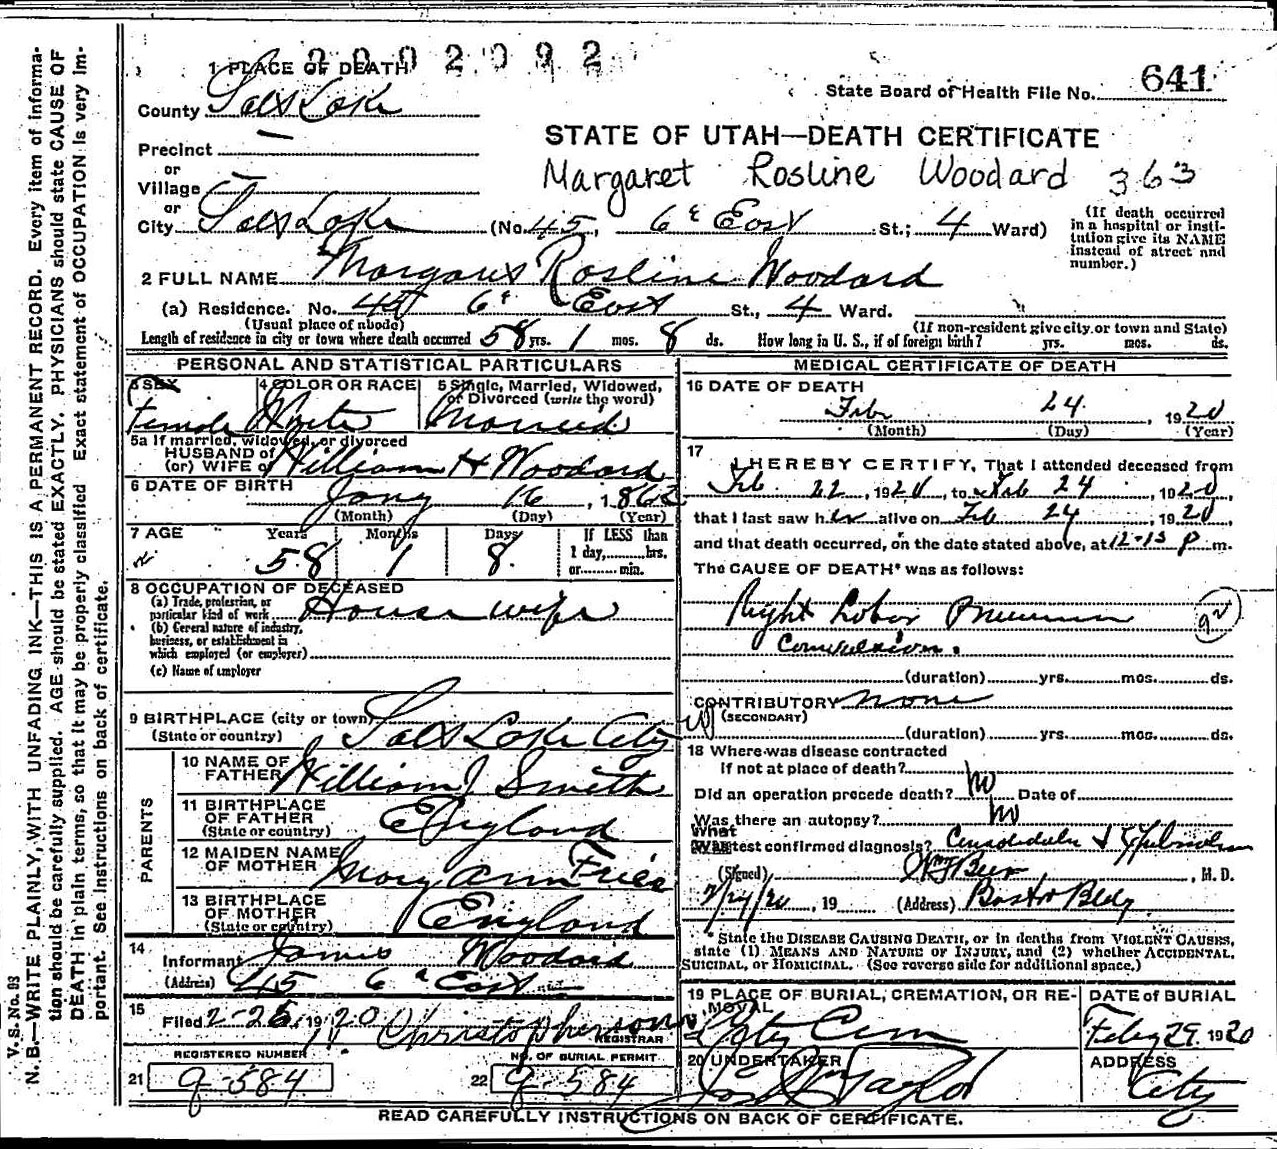 2002092
1 PLACE OF DEATH
State Board of Health File No. 641
County Salt Lake
STATE OF UTAH—DEATH CERTIFICATE
Precinct —
Margaret Rosline Woodard 363
or
Village —
or
City Salt Lake (No. 45, 6 East St.; 4 Ward)
(If death occurred
in a hospital or insti-
tution give its NAME
instead of street and
number.)
2 FULL NAME Margaret Rosline Woodard
(a) Residence. No. 45 6 East St., 4 Ward.
(Usual place of abode) (If non-resident give city or town and State)
Length of residence in city or town where death occurred 58 yrs. 1 mos. 8 ds. How long in U. S., if of foreign birth? yrs. mos. ds.
PERSONAL AND STATISTICAL PARTICULARS
3 SEX
Female
4 COLOR OR RACE
White
5 Single, Married, Widowed,
or Divorced (write the word)
Married
5a If married, widowed, or divorced
HUSBAND of
(or) WIFE of William H Woodard
6 DATE OF BIRTH
Jany 16, 1862
(Month) (Day) (Year)
7 AGE Years Months Days If LESS than
1 day, hrs.
58 1 8. or min.
8 OCCUPATION OF DECEASED
(a) Trade, profession, or
particular kind of work House wife
(b) General nature of industry,
business, or establishment in
which employed (or employer)
(c) Name of employer
9 BIRTHPLACE (city or town)
(State or country) Salt Lake City
PARENTS
10 NAME OF
FATHER William J Smith
11 BIRTHPLACE
OF FATHER
(State or country) England
12 MAIDEN NAME
OF MOTHER Mary Ann Fries
13 BIRTHPLACE
OF MOTHER
(State or country) England
14
Informant James Woodard
(Address) 45 6 East
15
Filed 2-25, 1920 Christopherson
REGISTRAR
REGISTERED NUMBER
21 9-584
NO. OF BURIAL PERMIT
22 9-584
MEDICAL CERTIFICATE OF DEATH
16 DATE OF DEATH
Feb 24, 1920
(Month) (Day) (Year)
17
I HEREBY CERTIFY, That I attended deceased from
Feb 22, 1920, to Feb 24, 1920,
that I last saw her alive on Feb 24, 1920
and that death occurred, on the date stated above, at 12-15 p m.
The CAUSE OF DEATH* was as follows:
Right Lobar 92
Convulsion.
(duration) yrs. mos. ds.
CONTRIBUTORY none
(SECONDARY)
(duration) yrs. mos. ds.
18 Where was disease contracted
if not at place of death?
Did an operation precede death? no Date of
Was there an autopsy? no
What
test confirmed diagnosis?
(Signed) Wm J Beer, M. D.
2/24/20, 19 (Address) Boston Bldg
State the DISEASE CAUSING DEATH, or in deaths from VIOLENT CAUSES,
state (1) MEANS AND NATURE OF INJURY, and (2) whether ACCIDENTAL,
SUICIDAL, or HOMICIDAL. (See reverse side for additional space.)
19 PLACE OF BURIAL, CREMATION, OR RE-
MOVAL
City Cem
DATE of BURIAL
Feby 29 1920
20 UNDERTAKER
Taylor
ADDRESS
City
READ CAREFULLY INSTRUCTIONS ON BACK OF CERTIFICATE.
V. S. No. 93
N. B.—WRITE PLAINLY, WITH UNFADING INK—THIS IS A PERMANENT RECORD. Every item of informa-
tion should be carefully supplied. AGE should be stated EXACTLY. PHYSICIANS should state CAUSE OF
DEATH in plain terms, so that it may be properly classified. Exact statement of OCCUPATION is very im-
portant. See instructions on back of certificate.